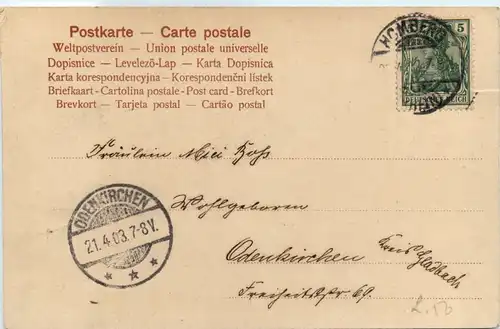 Postkarte — Carte postale
Weltpostverein — Union postale universelle
Dopisnice — Levelező-Lap — Karta Dopisnica
Karta korespondencyjna — Korespondenční lístek
Briefkaart - Cartolina postale - Post card - Brefkort
Brevkort — Tarjeta postal — Cartão postal
HOMBERG
5
REICH
Fräulein Mici Hoß
Wohlgeboren
Odenkirchen
Kreis Gladbach
Freiheitstr 69.
ODENKIRCHEN
21.4.03.7-8V.